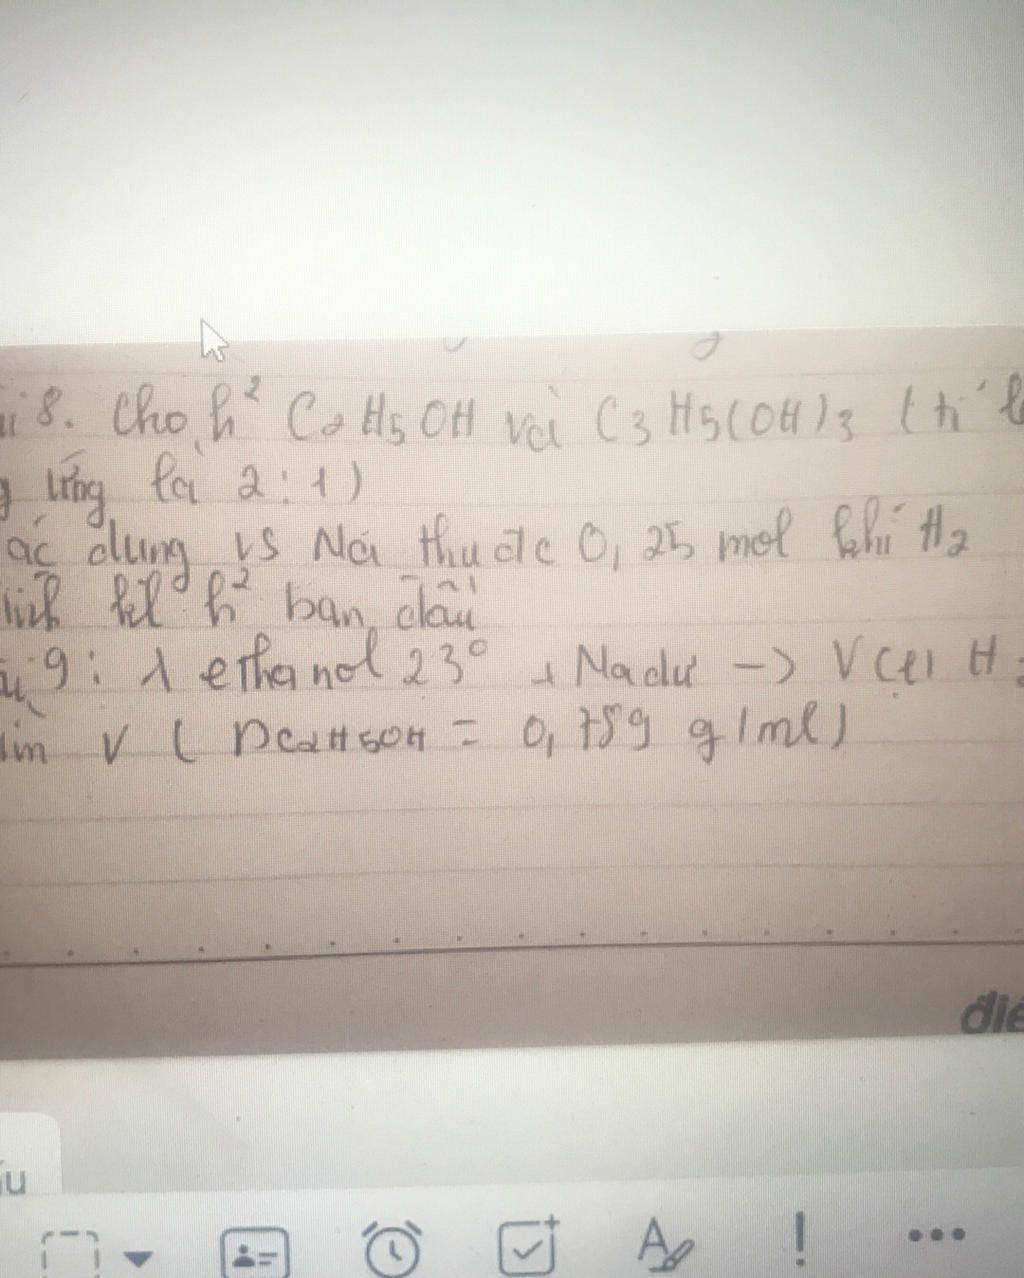 8. Cho h² C2H5OH và C3H5(OH)3 (tỉ
ứng là 2:1)
ác dụng vs Na thu đc 0,25 mol khí H2
h² ban đầu
9: ethanol 23° + Na dư -> V(l) H
V ( DC2H5OH = 0,789 g/ml)